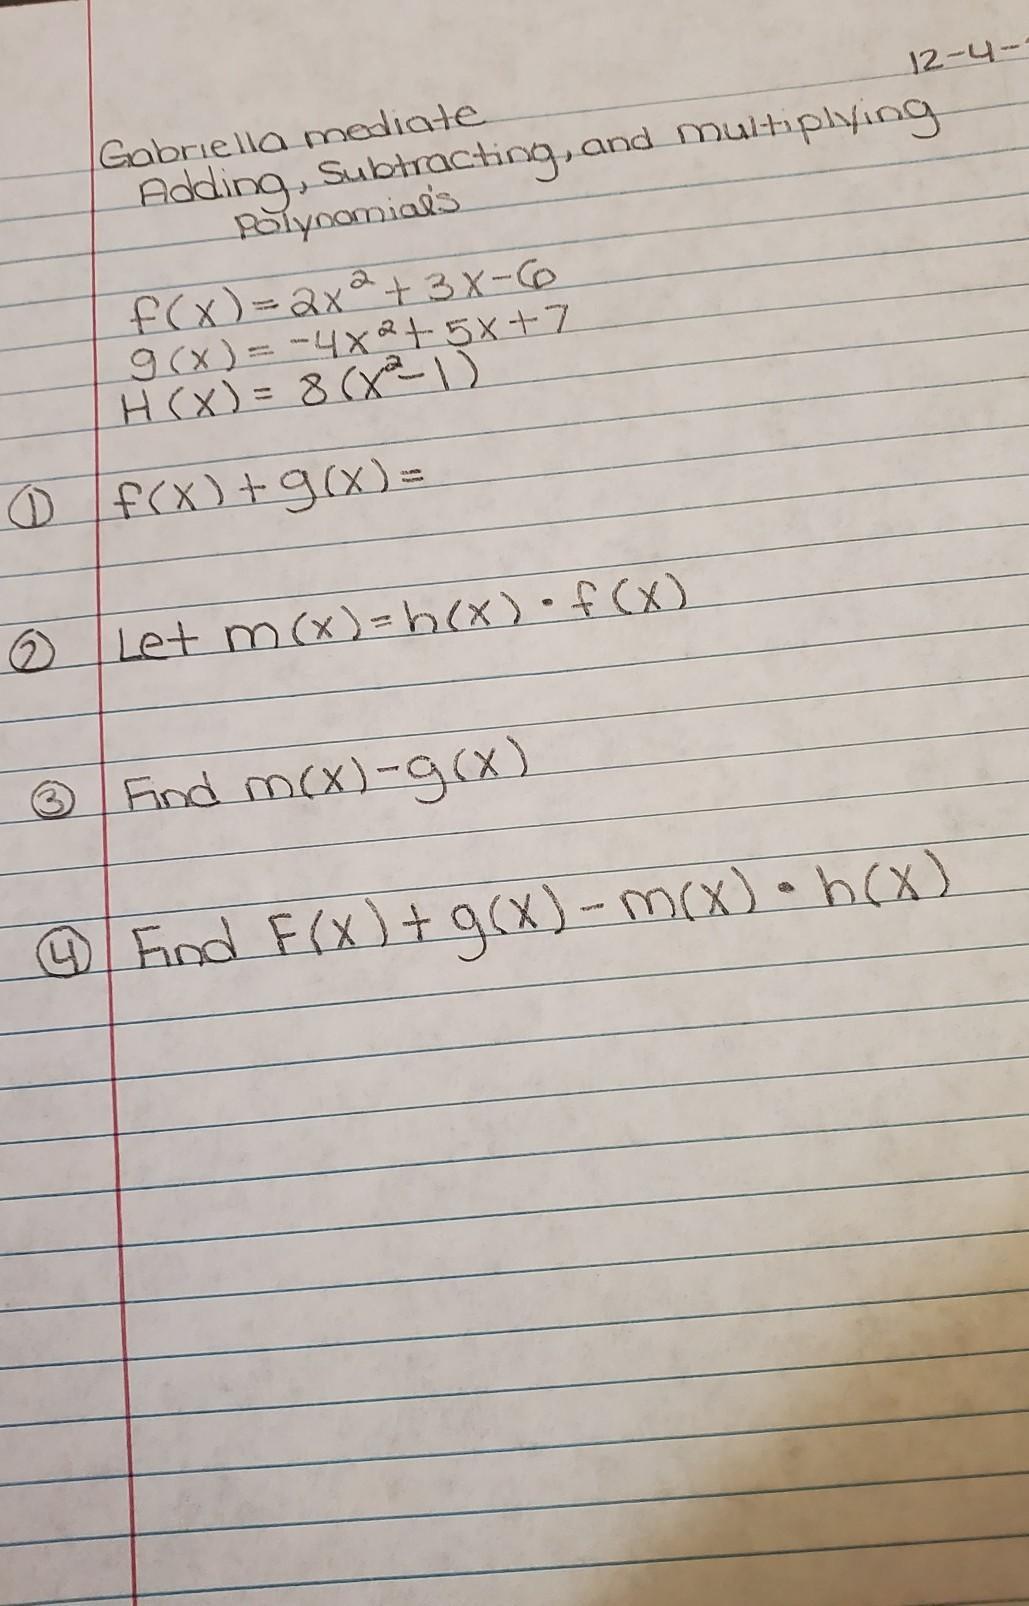 12-4-
Gabriella mediate
Adding, Subtracting, and multiplying
Polynomial's
f(x) = 2x² + 3x - 6
g(x) = -4x² + 5x + 7
H(x) = 8(x² - 1)
① f(x) + g(x) =
② Let m(x) = h(x) • f(x)
③ Find m(x) - g(x)
④ Find F(x) + g(x) - m(x) • h(x)